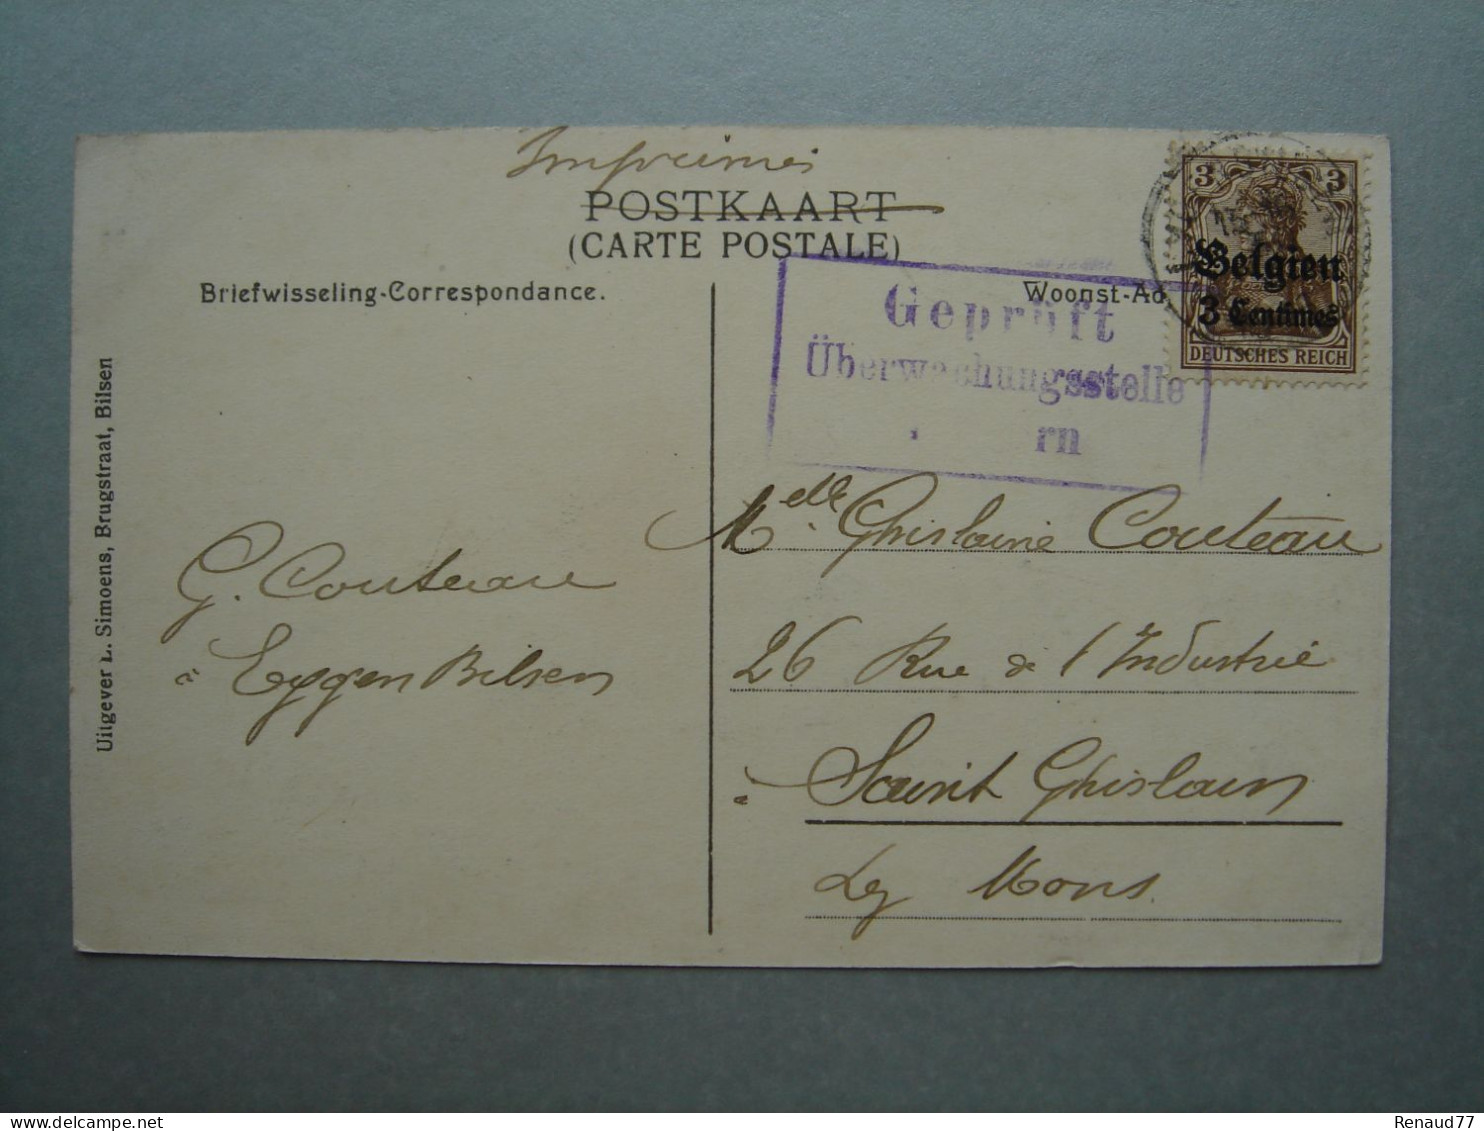 Imprimés
POSTKAART
(CARTE POSTALE)
Briefwisseling-Correspondance.
Woonst-Ad
3 3
Belgien
3 Centimes
DEUTSCHES REICH
Geprüft
Überwachungsstelle
rn
Uitgever L. Simoens, Brugstraat, Bilsen
G. Couteau
à Eygen Bilsen
Melle Ghislaine Couteau
26 Rue de l'Industrie
à Saint Ghislain
Lez Mons.
Renaud77